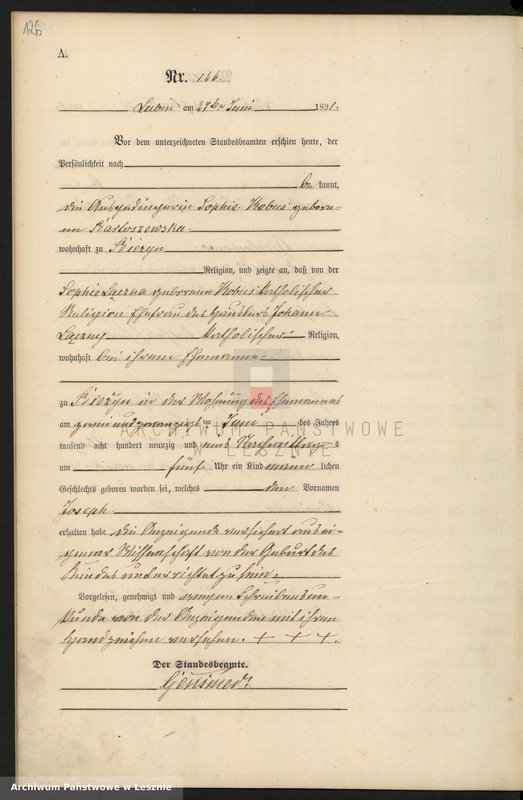 126
A.
Nr. 126.
Lubin am 27ten Juni 1891.
Vor dem unterzeichneten Standesbeamten erschien heute, der
Persönlichkeit nach
be kannt,
die Ausgedingerin Sophie Kobus gebore-
ne Bartoszewska.
wohnhaft zu Bieżyn
Religion, und zeigte an, daß von der
Sophie Łączna geborene Kobus katholischer
Religion Ehefrau des Häuslers Johann
Łączny katholischer Religion,
wohnhaft bei ihrem Ehemanne
zu Bieżyn in der Wohnung des Ehemannes
am zwei und zwanzigsten Juni des Jahres
tausend acht hundert neunzig und eins Nachmittags
um fünf Uhr ein Kind männ lichen
Geschlechts geboren worden sei, welches den Vornamen
Joseph
erhalten habe die Anzeigende versichert aus ei-
gener Wissenschaft von der Geburt des
Kindes unterrichtet zu sein.
Vorgelesen, genehmigt und wegen Schreibensun-
kunde von der Anzeigenden mit ihren
Handzeichen versehen. + + +.
Der Standesbeamte.
ARCHIWUM PAŃSTWOWE
W LESZNIE
Archiwum Państwowe w Lesznie